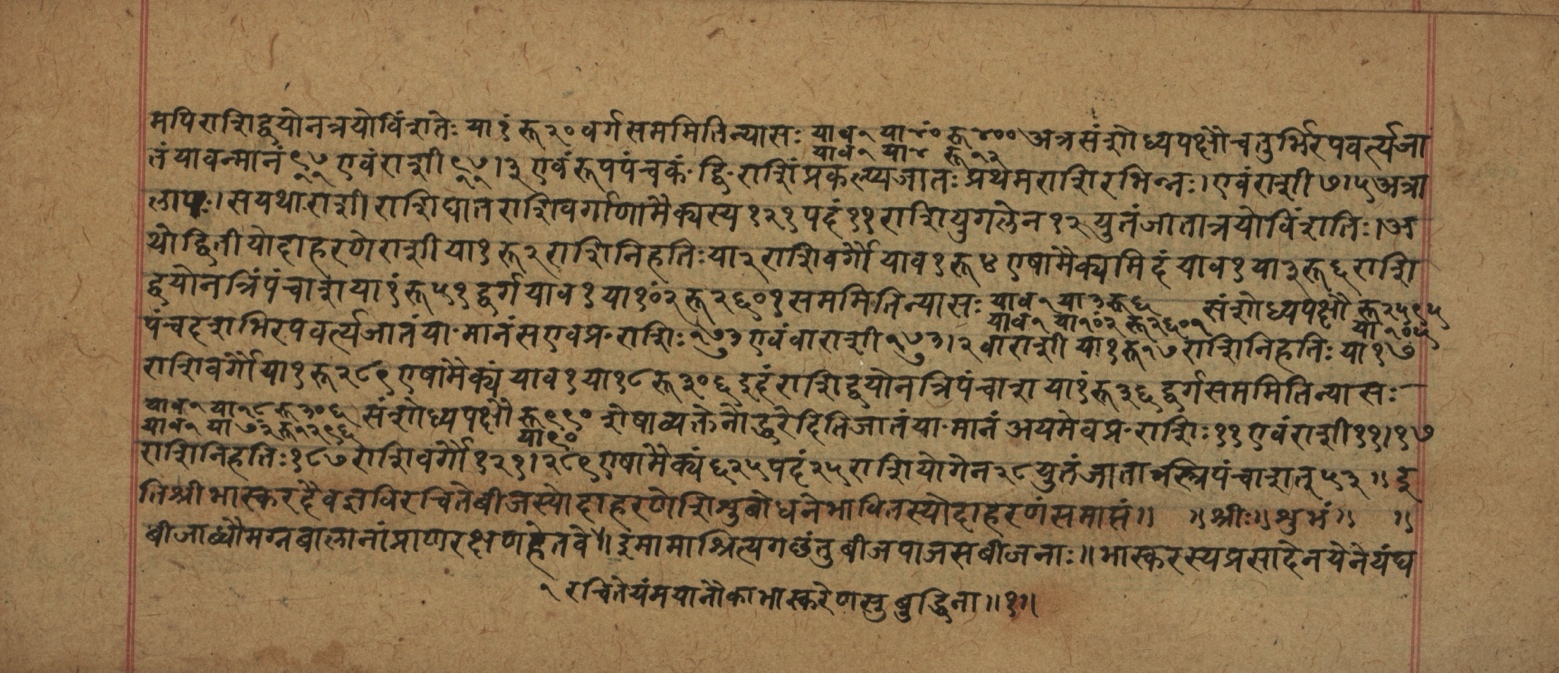 मपिराशिद्वयोनत्रयोविंशतेः या १ं रू २० वर्गसममितिन्यासः याव १ या ४०ं रू ४०० अत्रसंशोध्यपक्षौचतुर्भिरपवर्त्यजा
याव १ या ४ रू १२
तंयावन्मानं ९७ एवंराशी । ३ एवंरूपपंचकं द्वि॰राशिंप्रकल्प्यजातः प्रथमराशिरभिन्नः। एवंराशी ७।५ अत्रा
लापः। सयथा राशी राशिघातराशिवर्गाणामैक्यस्य १२१ पदं ११ राशियुगलेन १२ युतंजातात्रयोविंशतिः।अ
थोद्वितीयोदाहरणेराशी या १ रू २ राशिनिहतिः या २ राशिवर्गौ याव १ रू ४ एषामैक्यमिदं याव १ या ३ रू ६ राशि
द्वयोनत्रिपंचाश या १ं रू ५१ द्वर्ग याव १ या १०ं२ रू २६०१ सममितिन्यासः याव १ या ३ रू ६ संशोध्यपक्षौ रू २५९५
याव १ या १०ं२ रू २६०१ या १०५
पंचदशभिरपवर्त्यजातंया॰मानंसएवप्र॰राशिः १७३ एवंवाराशी १७३।२ वाराशी या १ रू १७ राशिनिहतिः या १७
राशिवर्गौ या १ रू २८९ एषामैक्यं याव १ या १८ रू ३०६ इदंराशिद्वयोनत्रिपंचाश या १ं रू ३६ द्वर्गसममितिन्यासः
याव १ या १८ रू ३०६ संशोध्यपक्षौ रू ९९० शेषाव्यक्तेनोद्धरेदितिजातंया॰मानं अयमेवप्र॰राशिः ११ एवंराशी ११।१७
याव १ या ७ं२ रू १२९६ या ९०
राशिनिहतिः १८७ राशिवर्गौ १२१।२८९ एषामैक्यं ६२५ पदं २५ राशियोगेन २८ युतंजातास्त्रिपंचाशत् ५३॥ इ
तिश्रीभास्करदैवज्ञविरचितेबीजस्योदाहरणेशिशुबोधनेभावितस्योदाहरणंसमाप्तं॥ ॥श्रीः॥शुभं॥ ॥
बीजाब्धौमग्नबालानांप्राणरक्षणहेतवे॥ इमामाश्रित्यगछंतु बीजपाजसबीजनाः॥ भास्करस्यप्रसादेनयेनेयंघ
१ रचितेयंमयानौकाभास्करेणसुबुद्धिना॥१॥